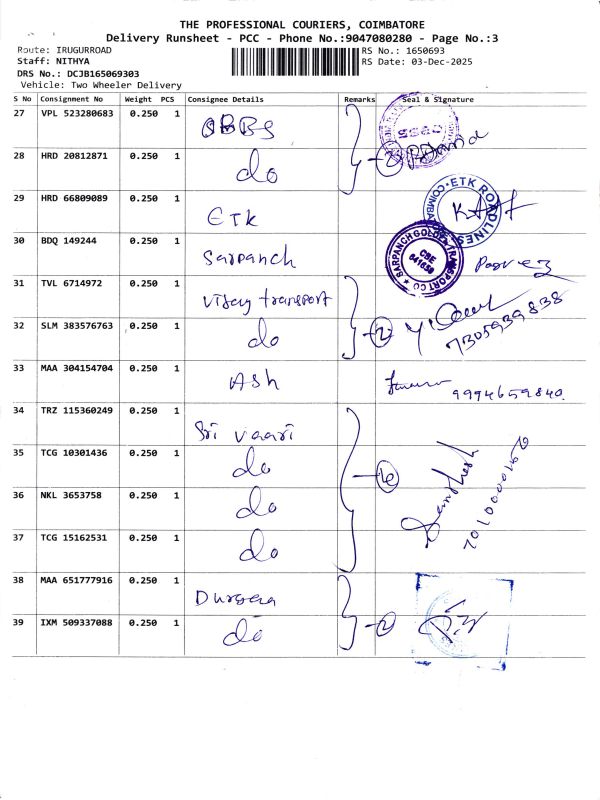 THE PROFESSIONAL COURIERS, COIMBATORE
Delivery Runsheet - PCC - Phone No.:9047080280 - Page No.:3
Route: IRUGURROAD
RS No.: 1650693
Staff: NITHYA
RS Date: 03-Dec-2025
DRS No.: DCJB165069303
Vehicle: Two Wheeler Delivery
S No Consignment No Weight PCS Consignee Details Remarks Seal & Signature
27 VPL 523280683 0.250 1
28 HRD 20812871 0.250 1 do
29 HRD 66809089 0.250 1 ETK
ETK ROADLINES
30 BDQ 149244 0.250 1 Sarpanch
SARPANCH GOLDEN TRANSPORT CO
CBE
641659
31 TVL 6714972 0.250 1 Vijay transport
32 SLM 383576763 0.250 1 do 2
7305939838
33 MAA 304154704 0.250 1 Ash 9994659840
34 TRZ 115360249 0.250 1 Sri vaari
35 TCG 10301436 0.250 1 do
36 NKL 3653758 0.250 1 do
37 TCG 15162531 0.250 1 do
38 MAA 651777916 0.250 1
39 IXM 509337088 0.250 1 do